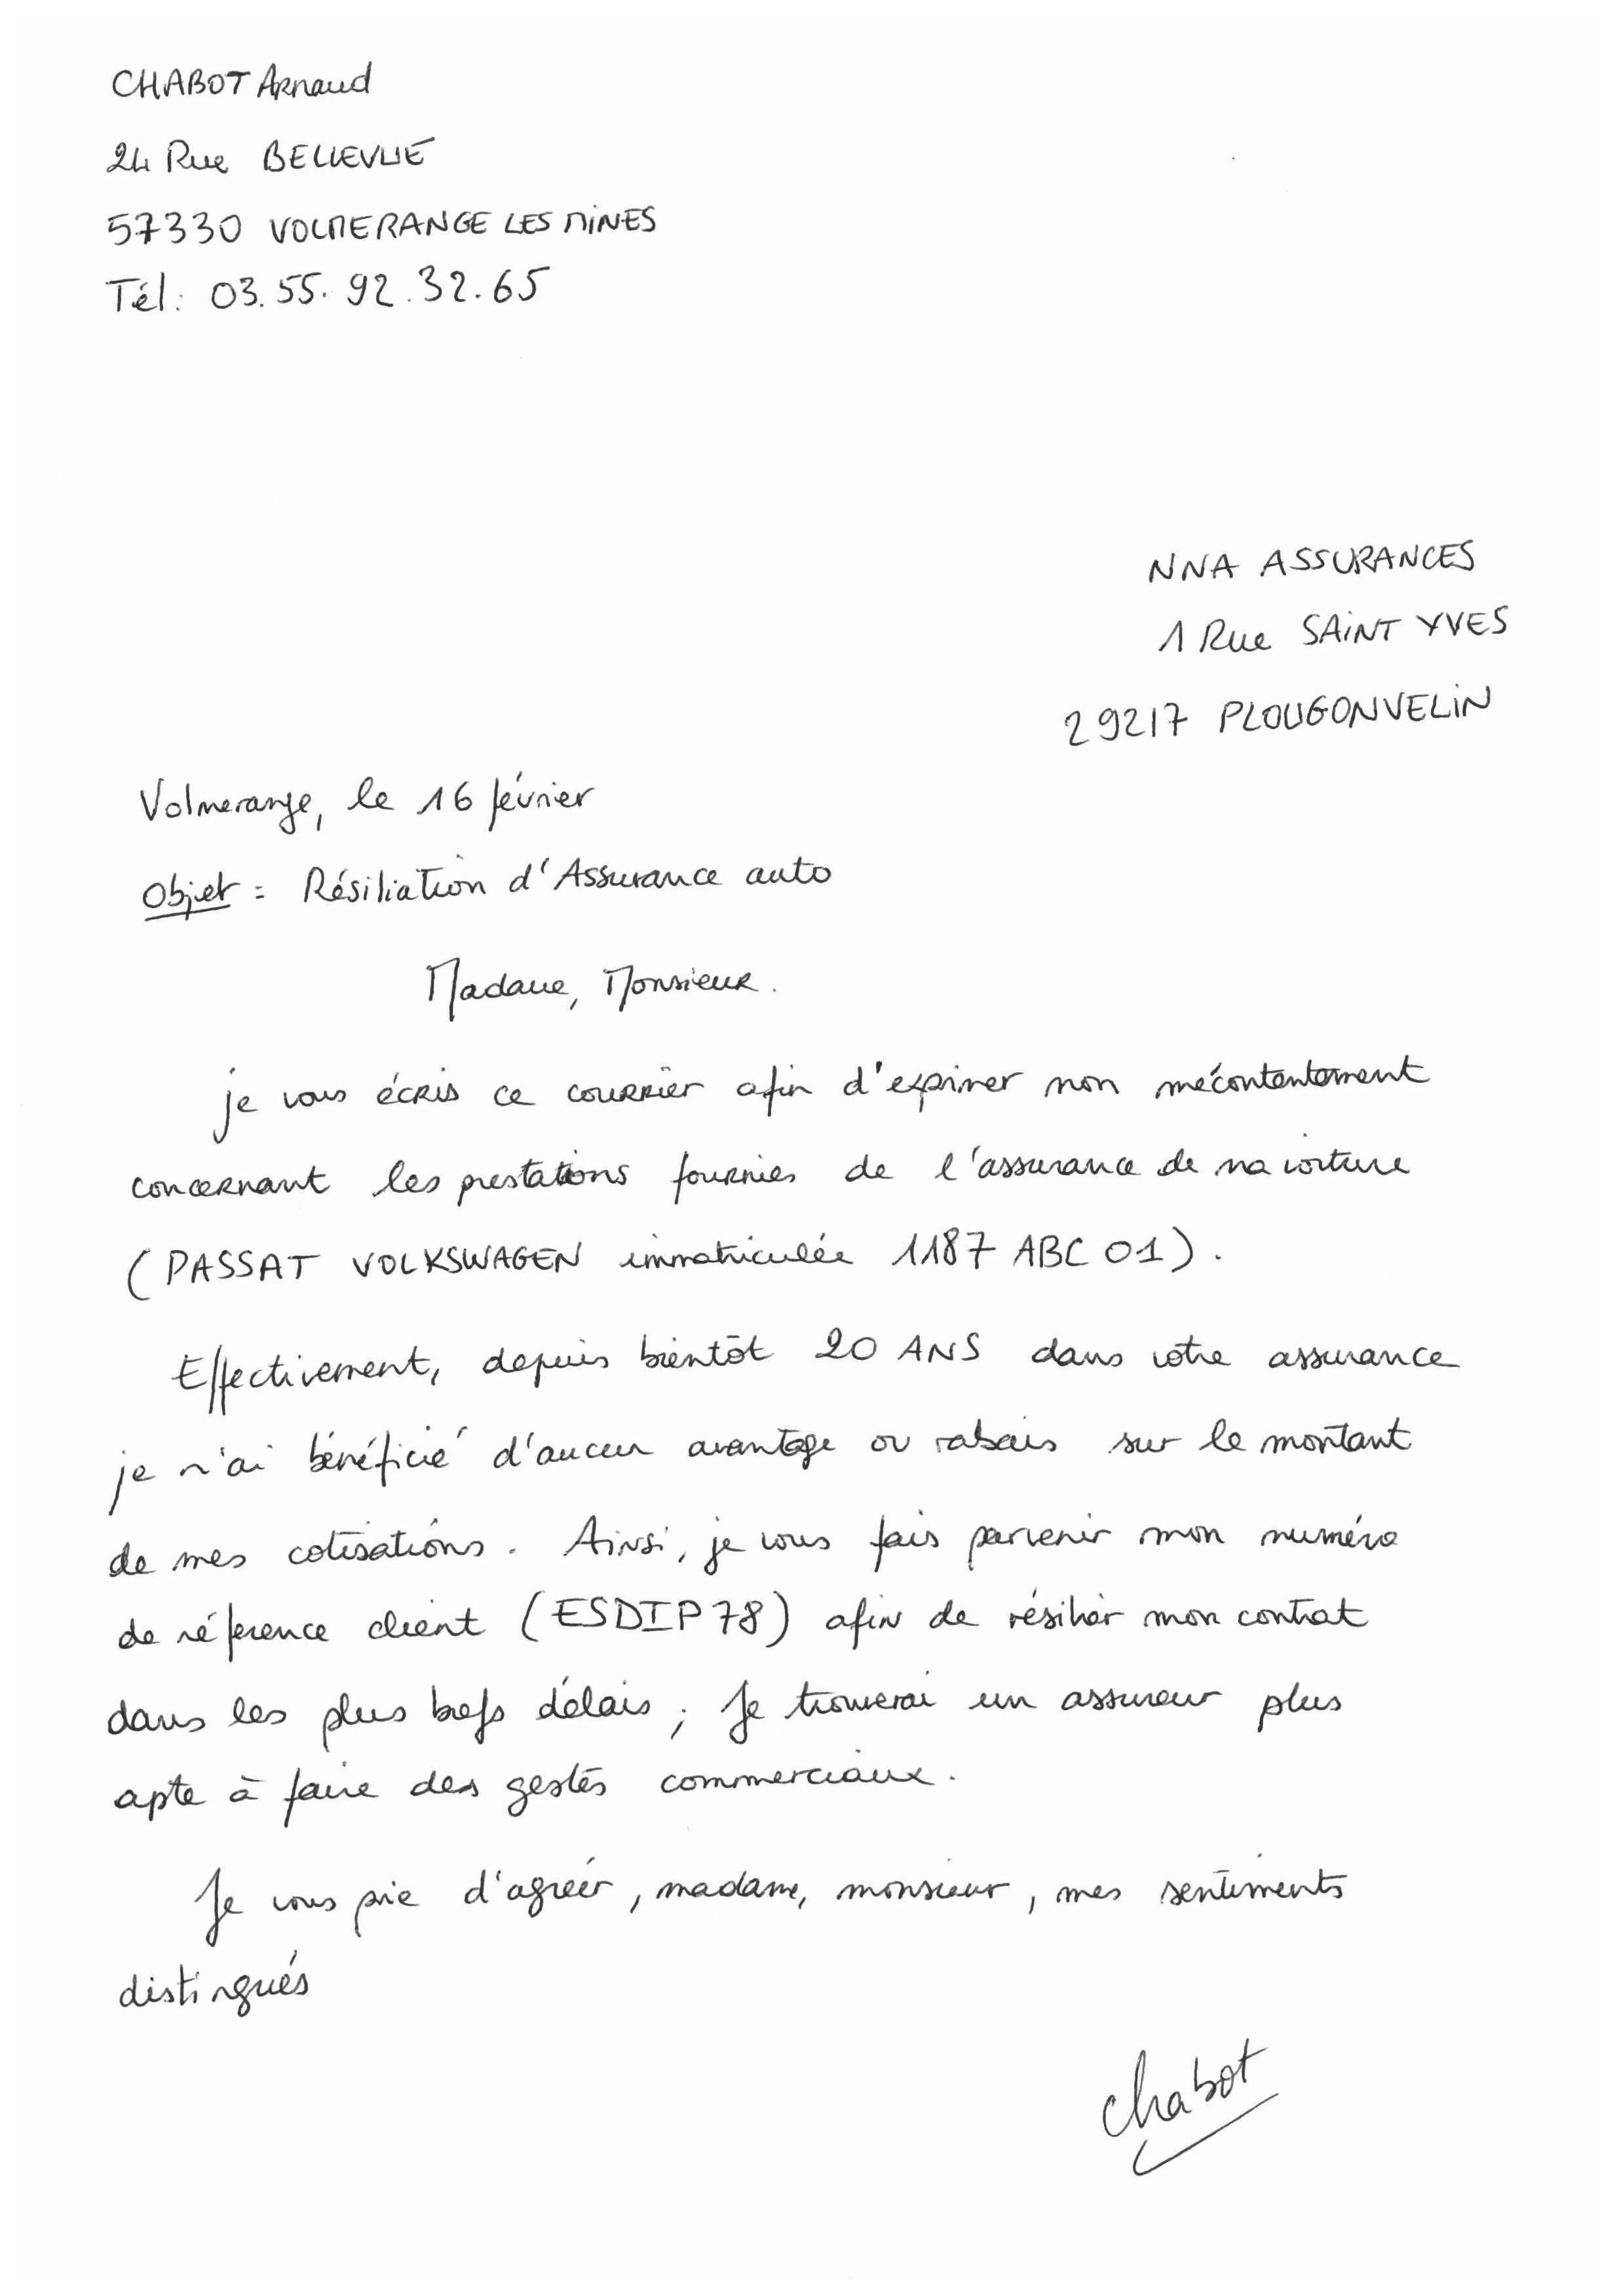 CHABOT Arnaud
24 Rue BELLEVUE
57330 VOLMERANGE LES MINES
Tél: 03.55.92.32.65
NNA ASSURANCES
1 Rue SAINT YVES
29217 PLOUGONVELIN
Volmerange, le 16 février
Objet = Résiliation d'Assurance auto
Madame, Monsieur.
je vous écris ce courrier afin d'expimer mon mécontentement
concernant les prestations fournies de l'assurance de ma voiture
(PASSAT VOLKSWAGEN immatriculée 1187 ABC 01).
Effectivement, depuis bientôt 20 ANS dans votre assurance
je n'ai bénéficié d'aucun avantage ou rabais sur le montant
de mes cotisations. Ainsi, je vous fais parvenir mon numéro
de référence client (ESDIP78) afin de résilier mon contrat
dans les plus brefs délais; Je trouverai un assureur plus
apte à faire des gestes commerciaux.
Je vous prie d'agréer, madame, monsieur, mes sentiments
distingués
Chabot